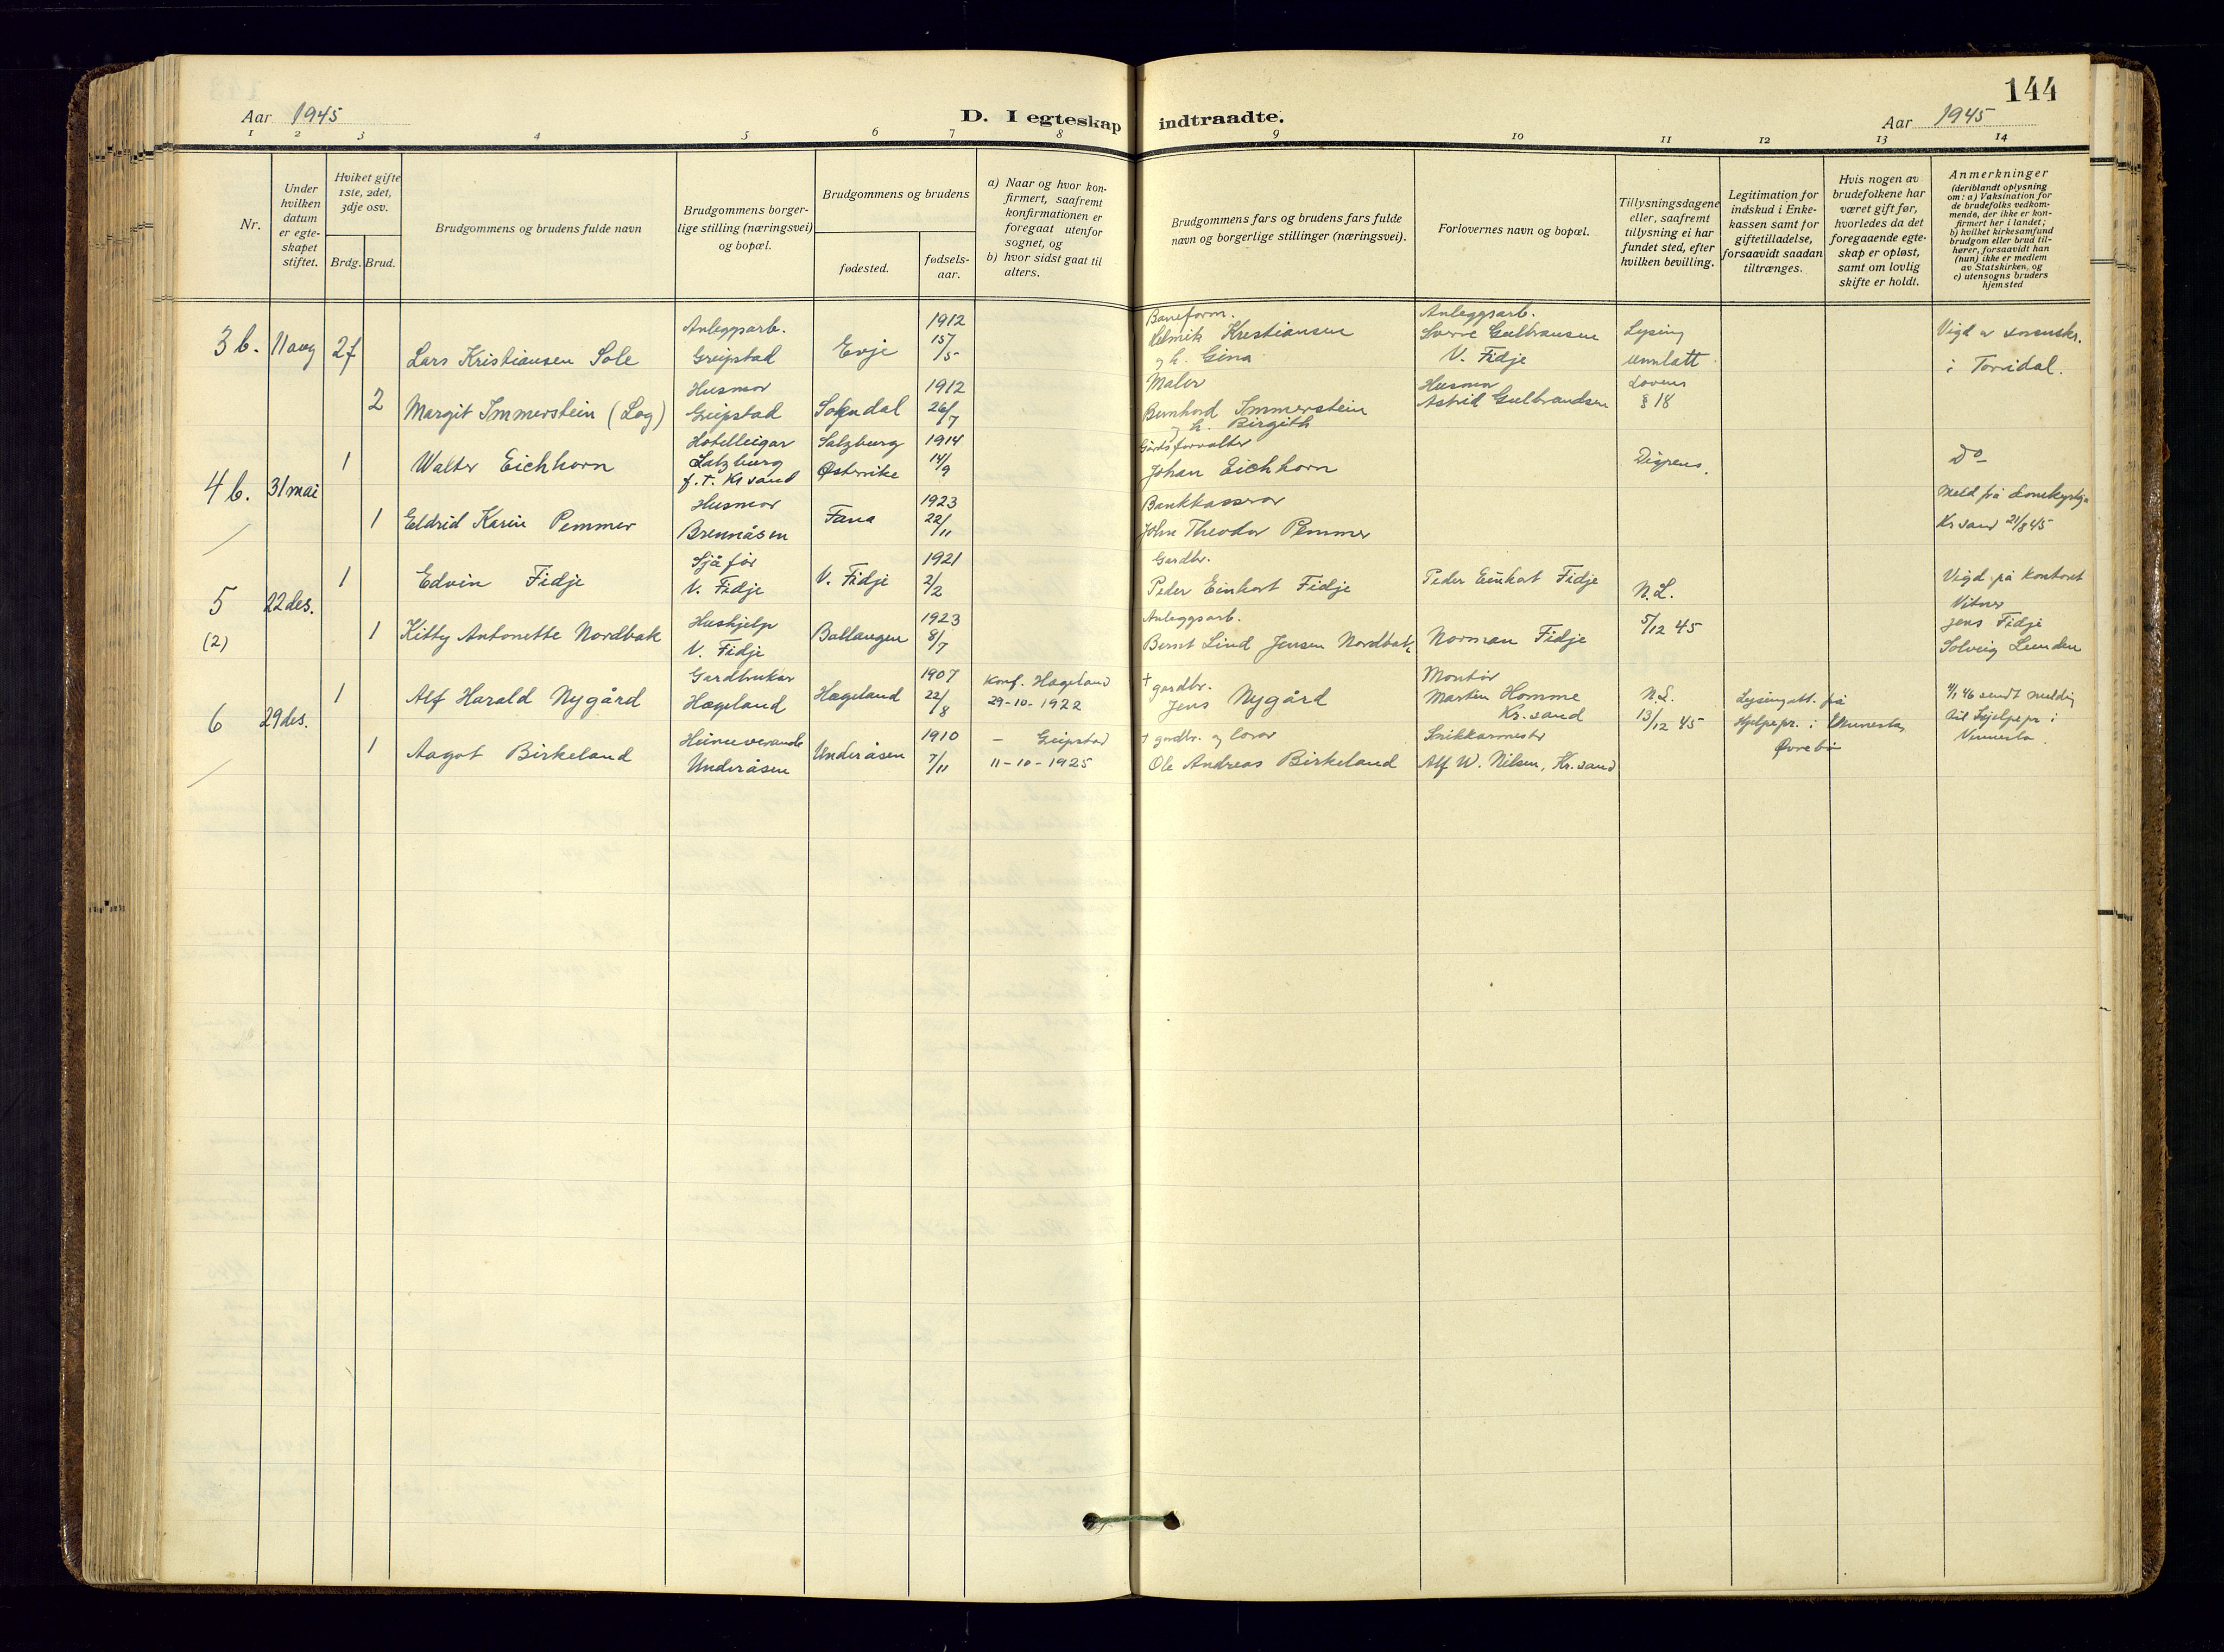 144
Aar 1945
D. I egteskap indtraadte.
Aar 1945
1 2 3 4 5 6 7 8 9 10 11 12 13 14
Nr.
Under
hvilken
datum
er egte-
skapet
stiftet.
Hviket gifte
1ste, 2det,
3dje osv.
Brdg. Brud.
Brudgommens og brudens fulde navn
Brudgommens borger-
lige stilling (næringsvei)
og bopæl.
Brudgommens og brudens
fødested.
fødsels-
aar.
a) Naar og hvor kon-
firmert, saafremt
konfirmationen er
foregaat utenfor
sognet, og
b) hvor sidst gaat til
alters.
Brudgommens fars og brudens fars fulde
navn og borgerlige stillinger (næringsvei).
Forlovernes navn og bopæl.
Tillysningsdagene
eller, saafremt
tillysning ei har
fundet sted, efter
hvilken bevilling.
Legitimation for
indskud i Enke-
kassen samt for
giftetilladelse,
forsaavidt saadan
tiltrænges.
Hvis nogen av
brudefolkene har
været gift før,
hvorledes da det
foregaaende egte-
skap er opløst,
samt om lovlig
skifte er holdt.
Anmerkninger
(deriblandt oplysning
om: a) Vaksination for
de brudefolks vedkom-
mende, der ikke er kon-
firmert her i landet;
b) hvilket kirkesamfund
brudgom eller brud til-
hører, forsaavidt han
(hun) ikke er medlem
av Statskirken, og
c) utensogns bruders
hjemsted
3 b. 11 aug 2f
Lars Kristiansen Sole
Anleggsarb.
Greipstad
Evje
1912
15/5
Baneform.
Kristiansen
og h. Gina
Anleggsarb.
Sverre Gulbransen
V. Fidje
Lysing
unnlatt
Vigd av sorenskr.
i Torridal.
2
Margit Immerstein (Log)
Husmor
Greipstad
Sokndal
1912
26/7
Maler
Bernhard Immerstein
og h. Birgith
Husmor
Astrid Gulbrandsen
Lovens
§ 18
4 b. 31 mai
1
Walter Eichhorn
Hotelleigar
Salzburg
f. t. Kr.sand
Salzburg
Østerrike
1914
14/9
Gårdsforvalter
Johan Eichhorn
Dispens.
Do
1
Eldrid Karin Pemmer
Husmor
Brennåsen
Fana
1923
22/11
Bankkasserar
John Theodor Pemmer
Meld frå domkyrkja
Kr sand 21/8 45
5
(2)
22 des.
1
Edvin Fidje
Sjåfør
V. Fidje
V. Fidje
1921
2/2
Gardbr.
Peder Einhart Fidje
Peder Einhart Fidje
N.L.
5/12 45
Vigd på kontoret
Vitner
Jens Fidje
Solveig Lunden
1
Kitty Antonette Nordbak
Hushjelp
V. Fidje
Ballangen
1923
8/7
Anleggsarb.
Bernt Lind Jensen Nordbak
Norman Fidje
6
29 des.
1
Alf Harald Nygård
Gardbrukar
Hægeland
Hægeland
1907
22/8
Konf. Hægeland
29-10-1922
† gardbr.
Jens Nygård
Montør
Martin Homme
Kr. sand
N.L.
13/12 45
Lysingatt. frå
Hjelpepr. i Vennesla
Øvrebø
4/1 46 sendt melding
til hjelpepr i
Vennesla
1
Aagot Birkeland
Heimeverande
Underåsen
Underåsen
1910
7/11
- Greipstad
11-10-1925
† gardbr. og lærar
Ole Andreas Birkeland
Snikkarmester
Alf W. Nilsen, Kr. sand